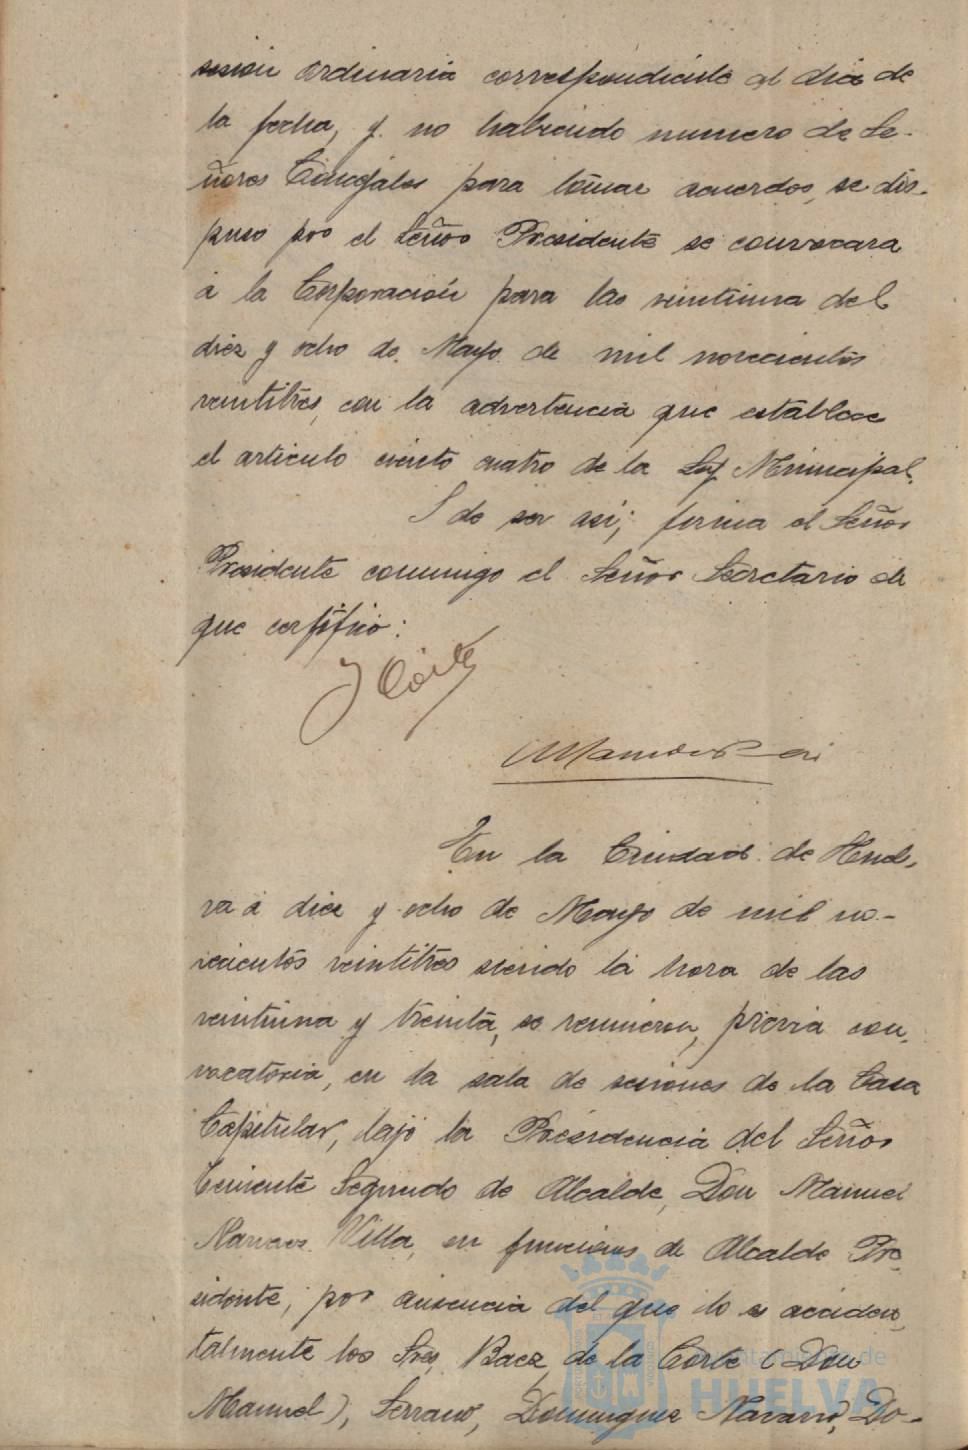 sesión ordinaria correspondiente al dia de
la fecha, y no habiendo numero de Se-
ñores Concejales para tomar acuerdos, se dis-
puso por el Señor Presidente se convocara
a la Corporación para las veintiuna del
diez y ocho de Mayo de mil novecientos
veintitres, con la advertencia que establece
el articulo ciento cuatro de la Ley Municipal.
I de ser asi; firma el Señor
Presidente conmigo el Señor Secretario de
que certifico:
En la Ciudad de Huel-
va á diez y ocho de Mayo de mil no-
vecientos veintitres siendo la hora de las
veintiuna y treinta, se reunieron, previa con-
vocatoria, en la sala de sesiones de la Casa
Capitular, bajo la Presidencia del Señor
Teniente Segundo de Alcalde, Don Manuel
Villa, en funciones de Alcalde Pre-
sidente, por ausencia del que lo es acciden-
talmente los Sres, Baez de la Corte (Don
Manuel), Serrano, Dominguez Navarro, Do-
Ayuntamiento de
HUELVA